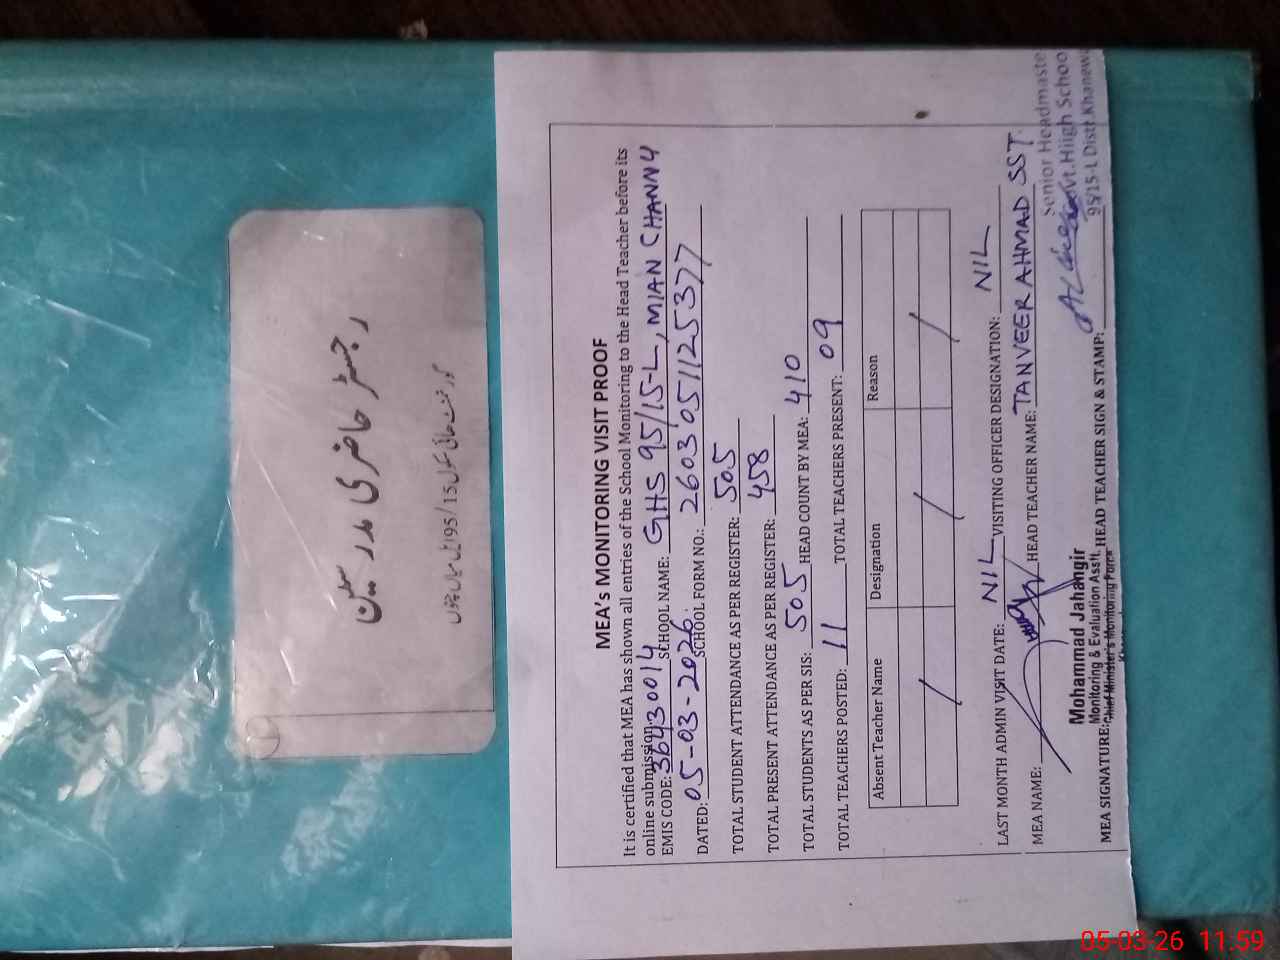 رجسٹر حاضری مدرسین
گورنمنٹ ہائی سکول 95/15 ایل میاں چنوں
MEA's MONITORING VISIT PROOF
It is certified that MEA has shown all entries of the School Monitoring to the Head Teacher before its
online submission.
EMIS CODE: 36430014 SCHOOL NAME: GHS 95/15-L, MIAN CHANNU
DATED: 05-03-2026. SCHOOL FORM NO.: 2603051125377
TOTAL STUDENT ATTENDANCE AS PER REGISTER: 505
TOTAL PRESENT ATTENDANCE AS PER REGISTER: 458
TOTAL STUDENTS AS PER SIS: 505 HEAD COUNT BY MEA: 410
TOTAL TEACHERS POSTED: 11 TOTAL TEACHERS PRESENT: 09
Absent Teacher Name Designation Reason
/ / /
LAST MONTH ADMIN VISIT DATE: NIL VISITING OFFICER DESIGNATION: NIL
MEA NAME: HEAD TEACHER NAME: TANVEER AHMAD SST
Mohammad Jahangir
Monitoring & Evaluation Asstt.
Chief Minister's Monitoring Force
Senior Headmaste
Govt.Hiigh Schoo
95/15-L Distt.Khanewa
MEA SIGNATURE: HEAD TEACHER SIGN & STAMP:
05-03-26 11:59